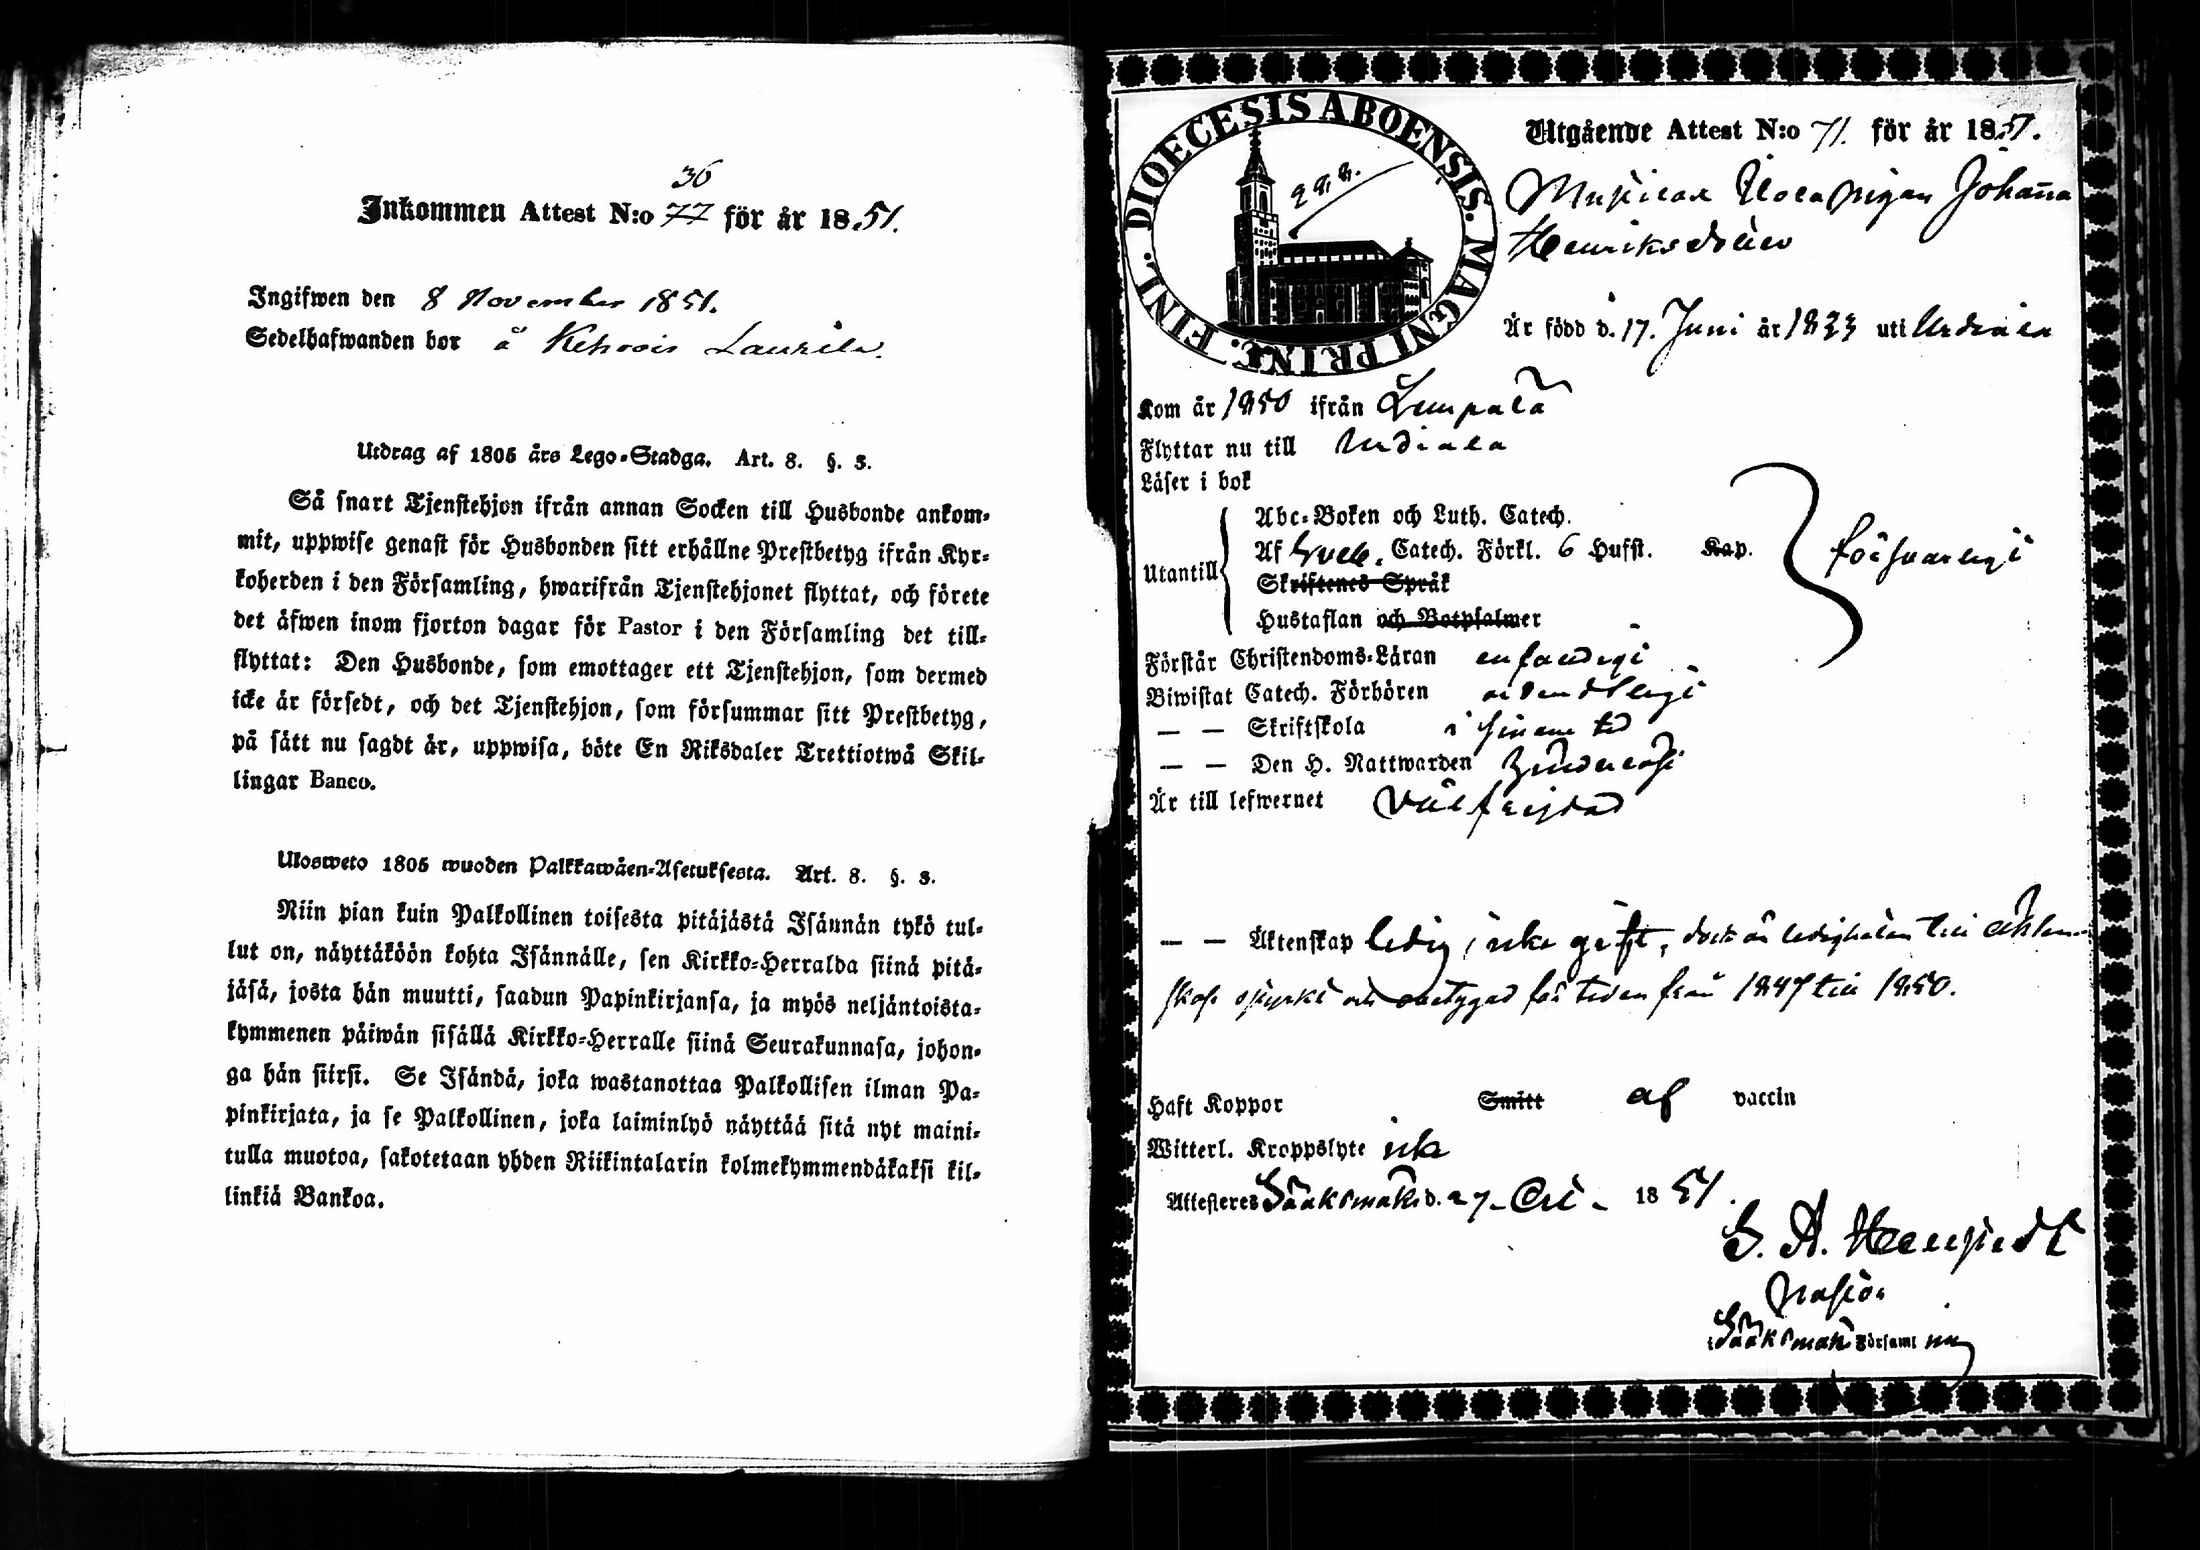 36
Inkommen Attest N:o 77 för år 1851.
Ingifwen den 8 November 1851.
Sedelhafwanden bor å Kehrois Laurila.
Utdrag af 1805 års Lego-Stadga. Art. 8. §. 3.
Så snart Tjenstehjon ifrån annan Socken till Husbonde ankom-
mit, uppwise genast för Husbonden sitt erhållne Prestbetyg ifrån Kyr-
koherden i den Församling, hwarifrån Tjenstehjonet flyttat, och förete
det äfwen inom fjorton dagar för Pastor i den Församling det till-
flyttat: Den Husbonde, som emottager ett Tjenstehjon, som dermed
icke är försedt, och det Tjenstehjon, som försummar sitt Prestbetyg,
på sätt nu sagdt är, uppwisa, böte En Riksdaler Trettiotwå Skil-
lingar Banco.
Ulosweto 1805 wuoden Palkkawäen-Asetuksesta. Art. 8. §. 3.
Niin pian kuin Palkollinen toisesta pitäjästä Isännän tykö tul-
lut on, näyttäköön kohta Isännälle, sen Kirkko-Herralda siinä pitä-
jäsä, josta hän muutti, saadun Papinkirjansa, ja myös neljäntoista-
kymmenen päiwän sisällä Kirkko-Herralle siinä Seurakunnasa, johon-
ga hän siirsi. Se Isändä, joka wastanottaa Palkollisen ilman Pa-
pinkirjata, ja se Palkollinen, joka laiminlyö näyttää sitä nyt maini-
tulla muotoa, sakotetaan yhden Riikintalarin kolmekymmendäkaksi kil-
linkiä Bankoa.
DIOECESIS ABOENSIS. MAGNI PRINC. FINL.
Utgående Attest N:o 71. för år 1851.
pigan Johanna
Henriksdotter
Är född d. 17. Juni år 1833 uti Urdiala
Kom år 1850 ifrån Lempälä
Flyttar nu till Urdiala
Läser i bok
Utantill
Abc-Boken och Luth. Catech.
Af Sveb. Catech. Förkl. 6 Hufst. Kap.
försvarligt
Skriftenes Språk
Hustaflan och Botpsalmer
Förstår Christendoms-Läran enfaldigt
Biwistat Catech. Förhören ordentligt
— — Skriftskola i sinom tid
— — Den H. Nattwarden
Är till lefwernet välfrejdad
— — Äktenskap ledig, icke gift, dock är ledigheten till äkten-
skap styrkt och obetygad för tiden från 1847 till 1850.
Haft Koppor Smitt af vaccin
Witterl. Kroppslyte icke
Attesteres Sääksmäki d. 27 Oct. 1851.
Pastor
i Sääksmäki Församling